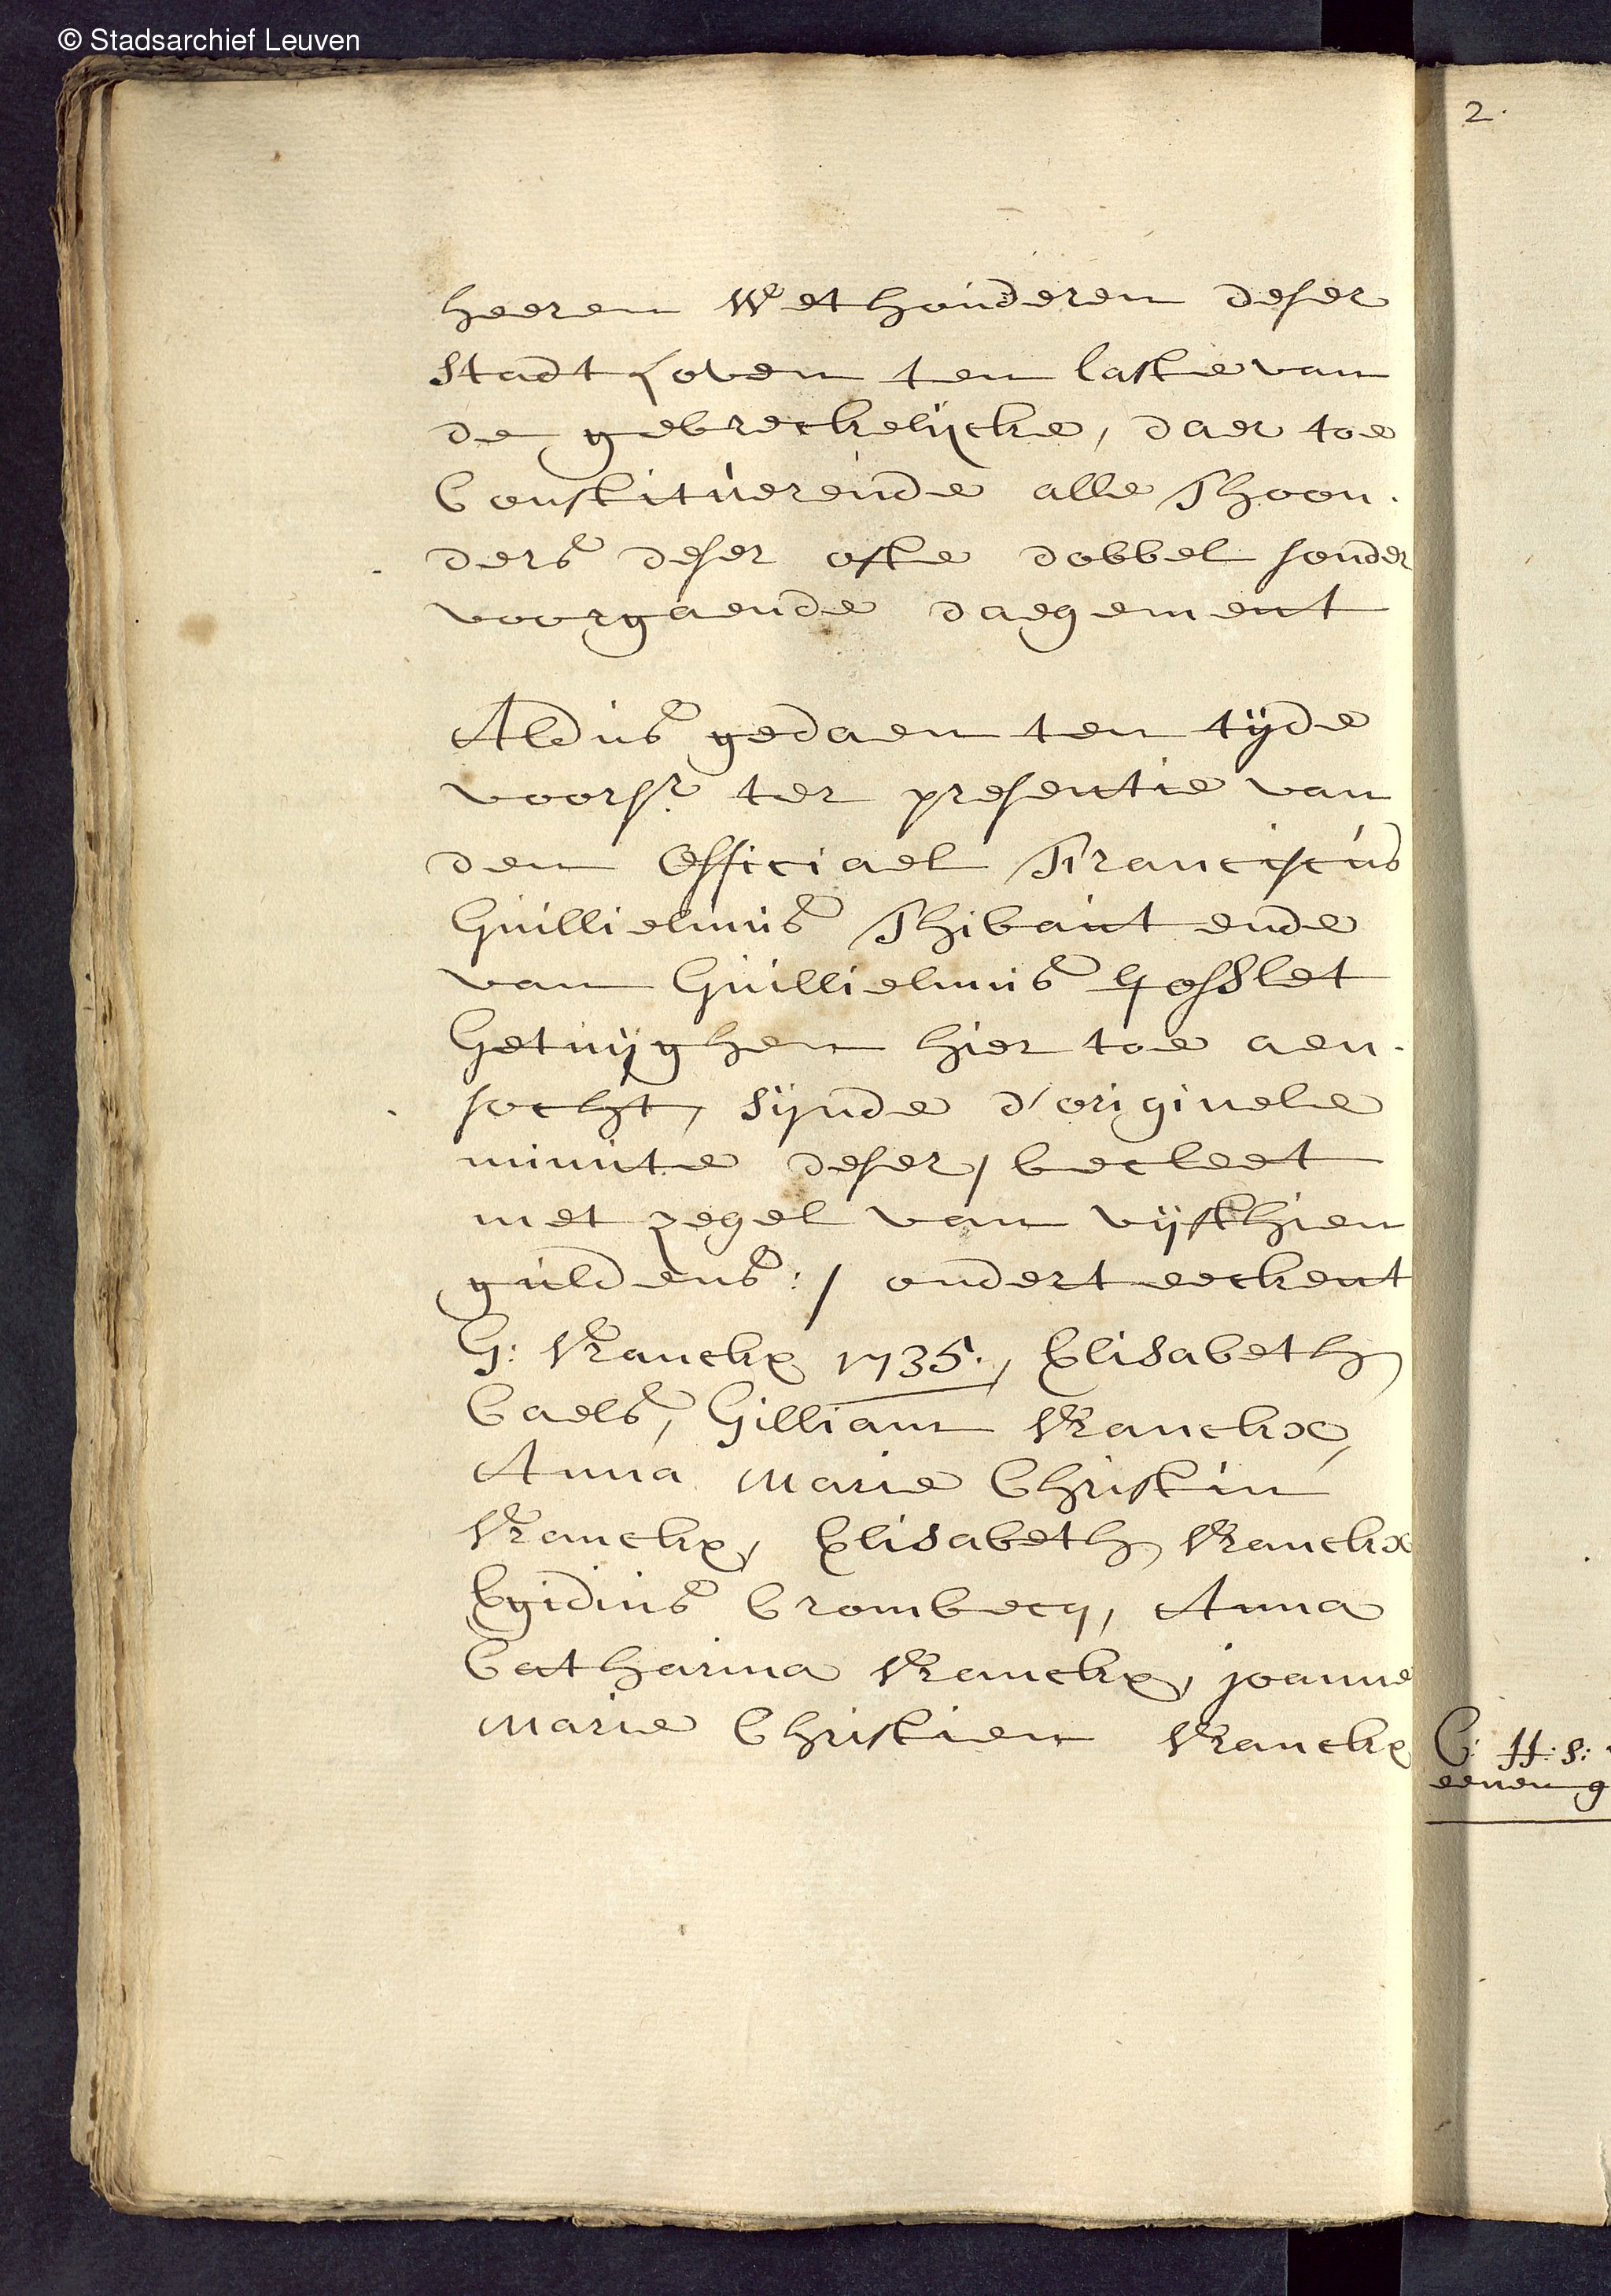 © Stadsarchief Leuven
heeren Wethouderen deser
Stadt Loven ten laste van
de gebreckelijcke, daer toe
Constituerende alle Thoon-
ders deser ofte dobbel sonder
voorgaende daegement
Aldus gedaen ten tijde
voorsr. ter presentie van
den Officiael Franciscus
Guillielmus Thibaut ende
van Guillielmus Gosslet
Getuijghen hier toe aen-
socht, sijnde d'originele
minute deser / becleet
met zegel van vijfthien
guldens: / onderteeckent
G: Vranckx 1735., Elisabeth
Caels, Gilliam Vranckx,
Anna Marie Christin
Vranckx, Elisabeth Vranckx
Egidius Crombecq, Anna
Catharina Vranckx, joanne
Marie Christien Vranckx
2.
C: H: s:
eenen g